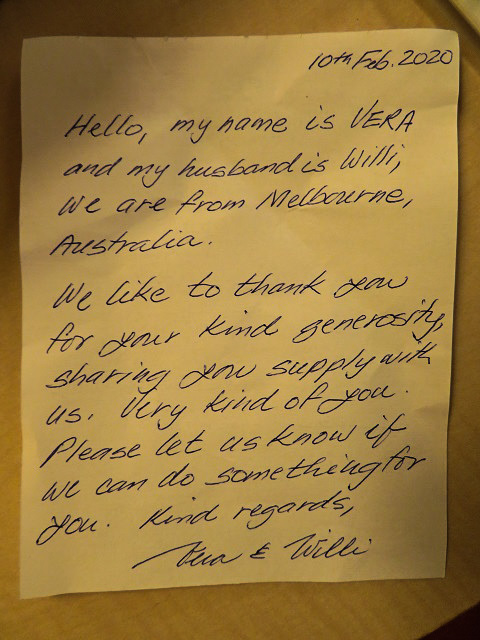 10th Feb. 2020
Hello, my name is VERA
and my husband is Willi,
We are from Melbourne,
Australia.
We like to thank you
for your kind generosity,
sharing you supply with
us. Very kind of you.
Please let us know if
we can do something for
you. Kind regards,
Vera & Willi